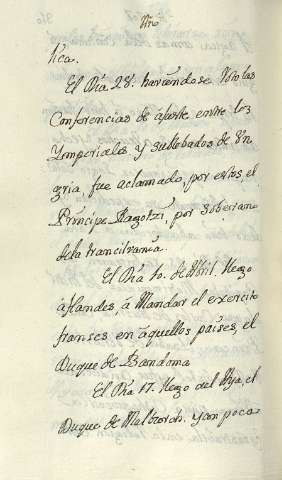 Año
tica.
El Dia 28. haviendose Roto las
Conferencias de ájuste entre los
Ymperiales, y sublebados de Un
gria fue aclammado, por estos, el
Principe Ragotzi, por Soberano
de la trancilvania
El Dia 10. de Abril. llego
á flandes, á Mandar el exercito
franses en aquellos paises, el
Duque de Bandoma
El Dia 17. llego del Aya, el
Duque de y an poca